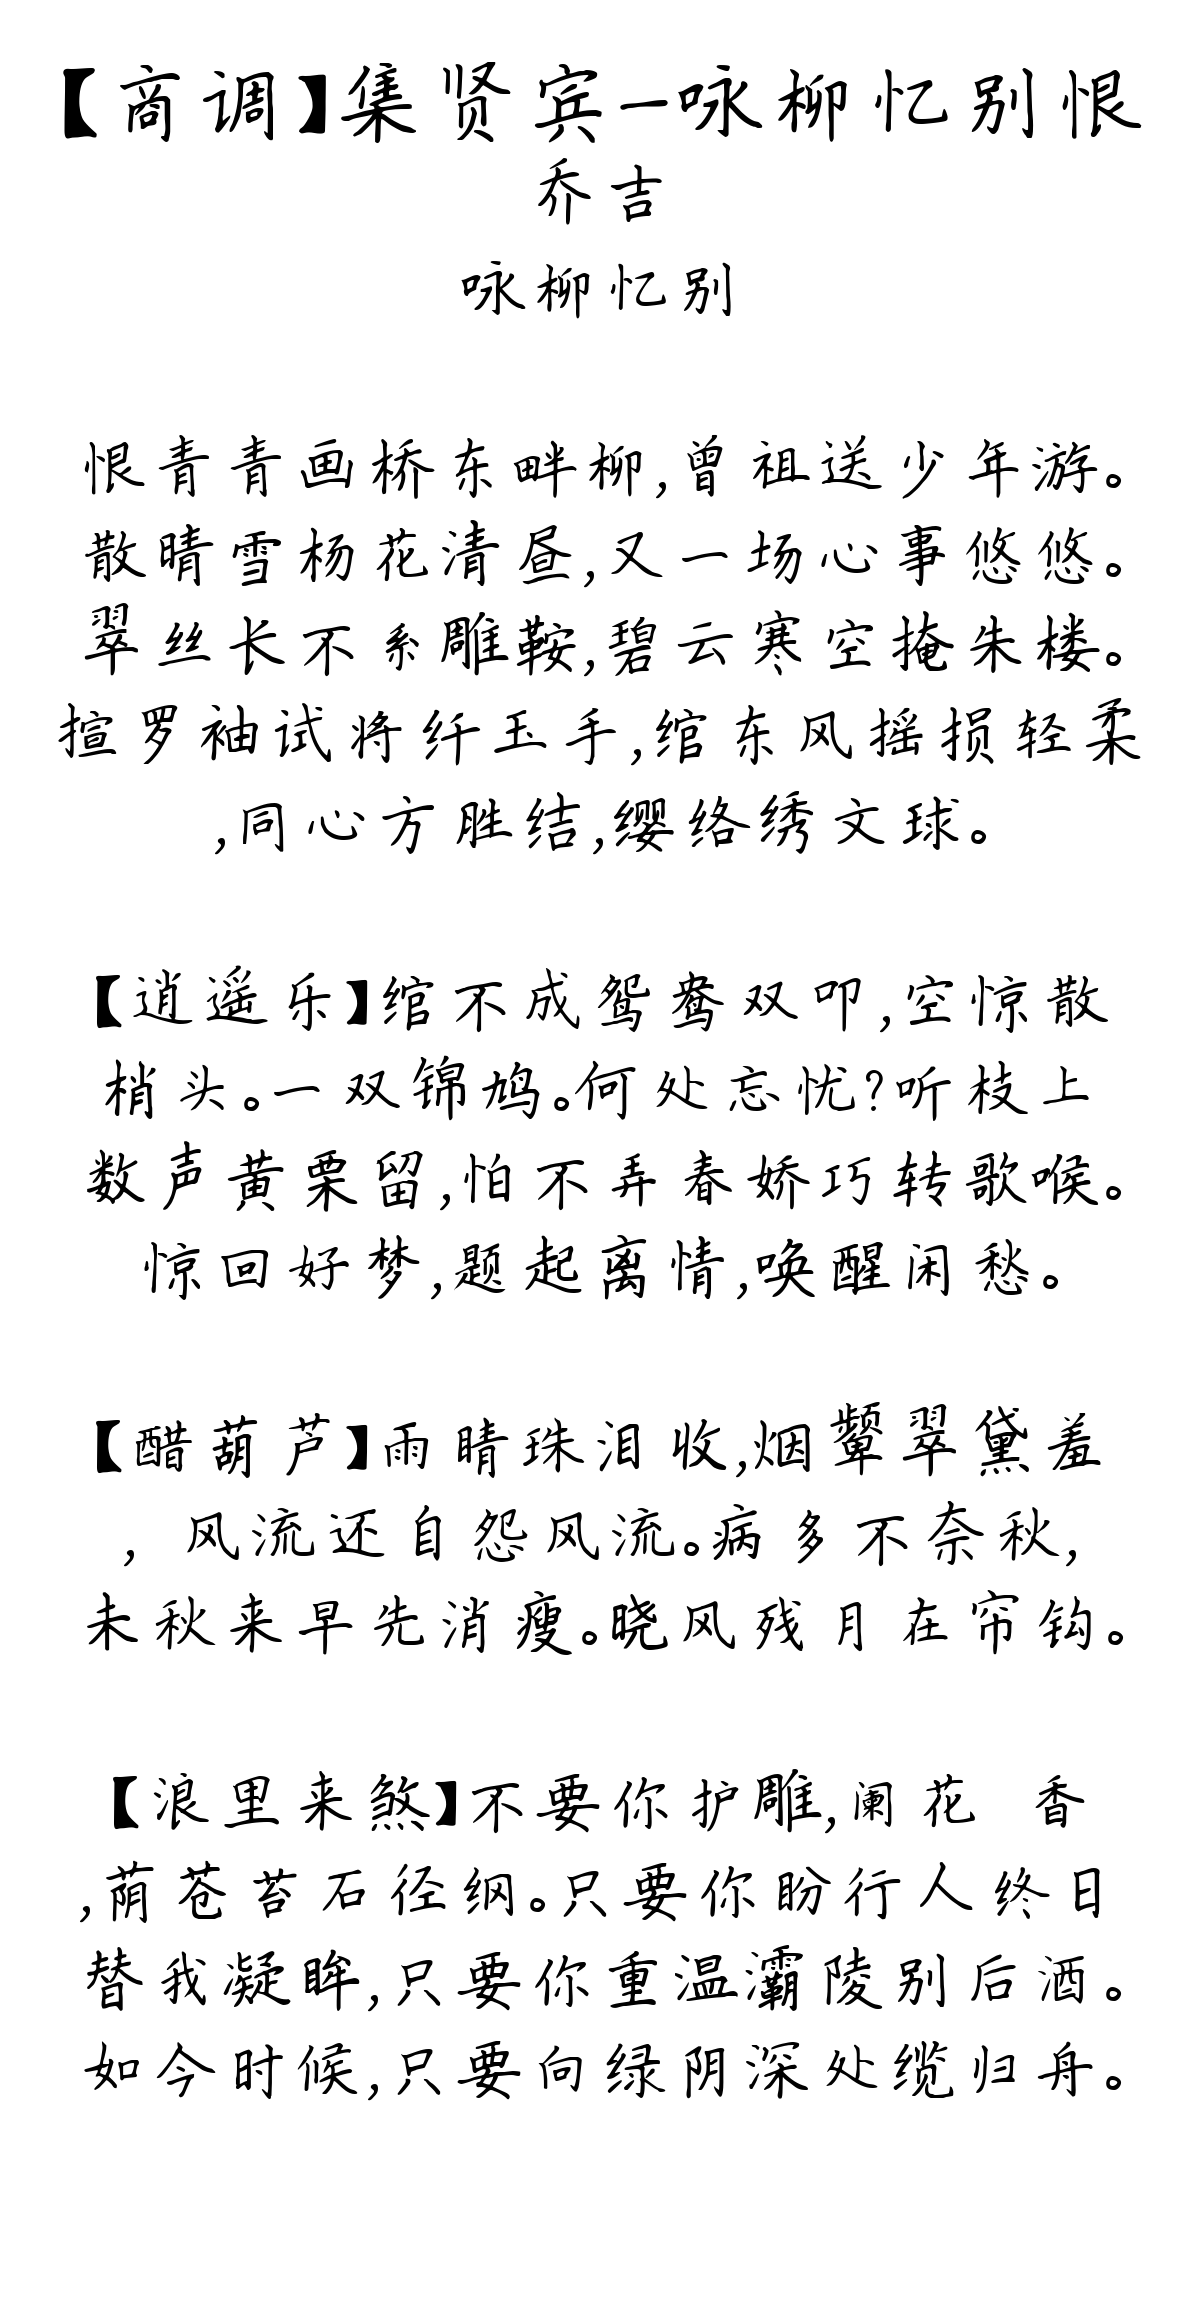 【商调】集贤宾-咏柳忆别恨
乔吉
咏柳忆别
恨青青画桥东畔柳,曾祖送少年游。
散晴雪杨花清昼,又一场心事悠悠。
翠丝长不系雕鞍,碧云寒空掩朱楼。
揎罗袖试将纤玉手,绾东风摇损轻柔
,同心方胜结,缨络绣文球。
【逍遥乐】绾不成鸳鸯双叩,空惊散
梢头。一双锦鸠。何处忘忧?听枝上
数声黄栗留,怕不弄春娇巧转歌喉。
惊回好梦,题起离情,唤醒闲愁。
【醋葫芦】雨晴珠泪收,烟颦翠黛羞
, 风流还自怨风流。病多不奈秋,
未秋来早先消瘦。晓风残月在帘钩。
【浪里来煞】不要你护雕,阑花 香
,荫苍苔石径纲。只要你盼行人终日
替我凝眸,只要你重温灞陵别后酒。
如今时候,只要向绿阴深处缆归舟。